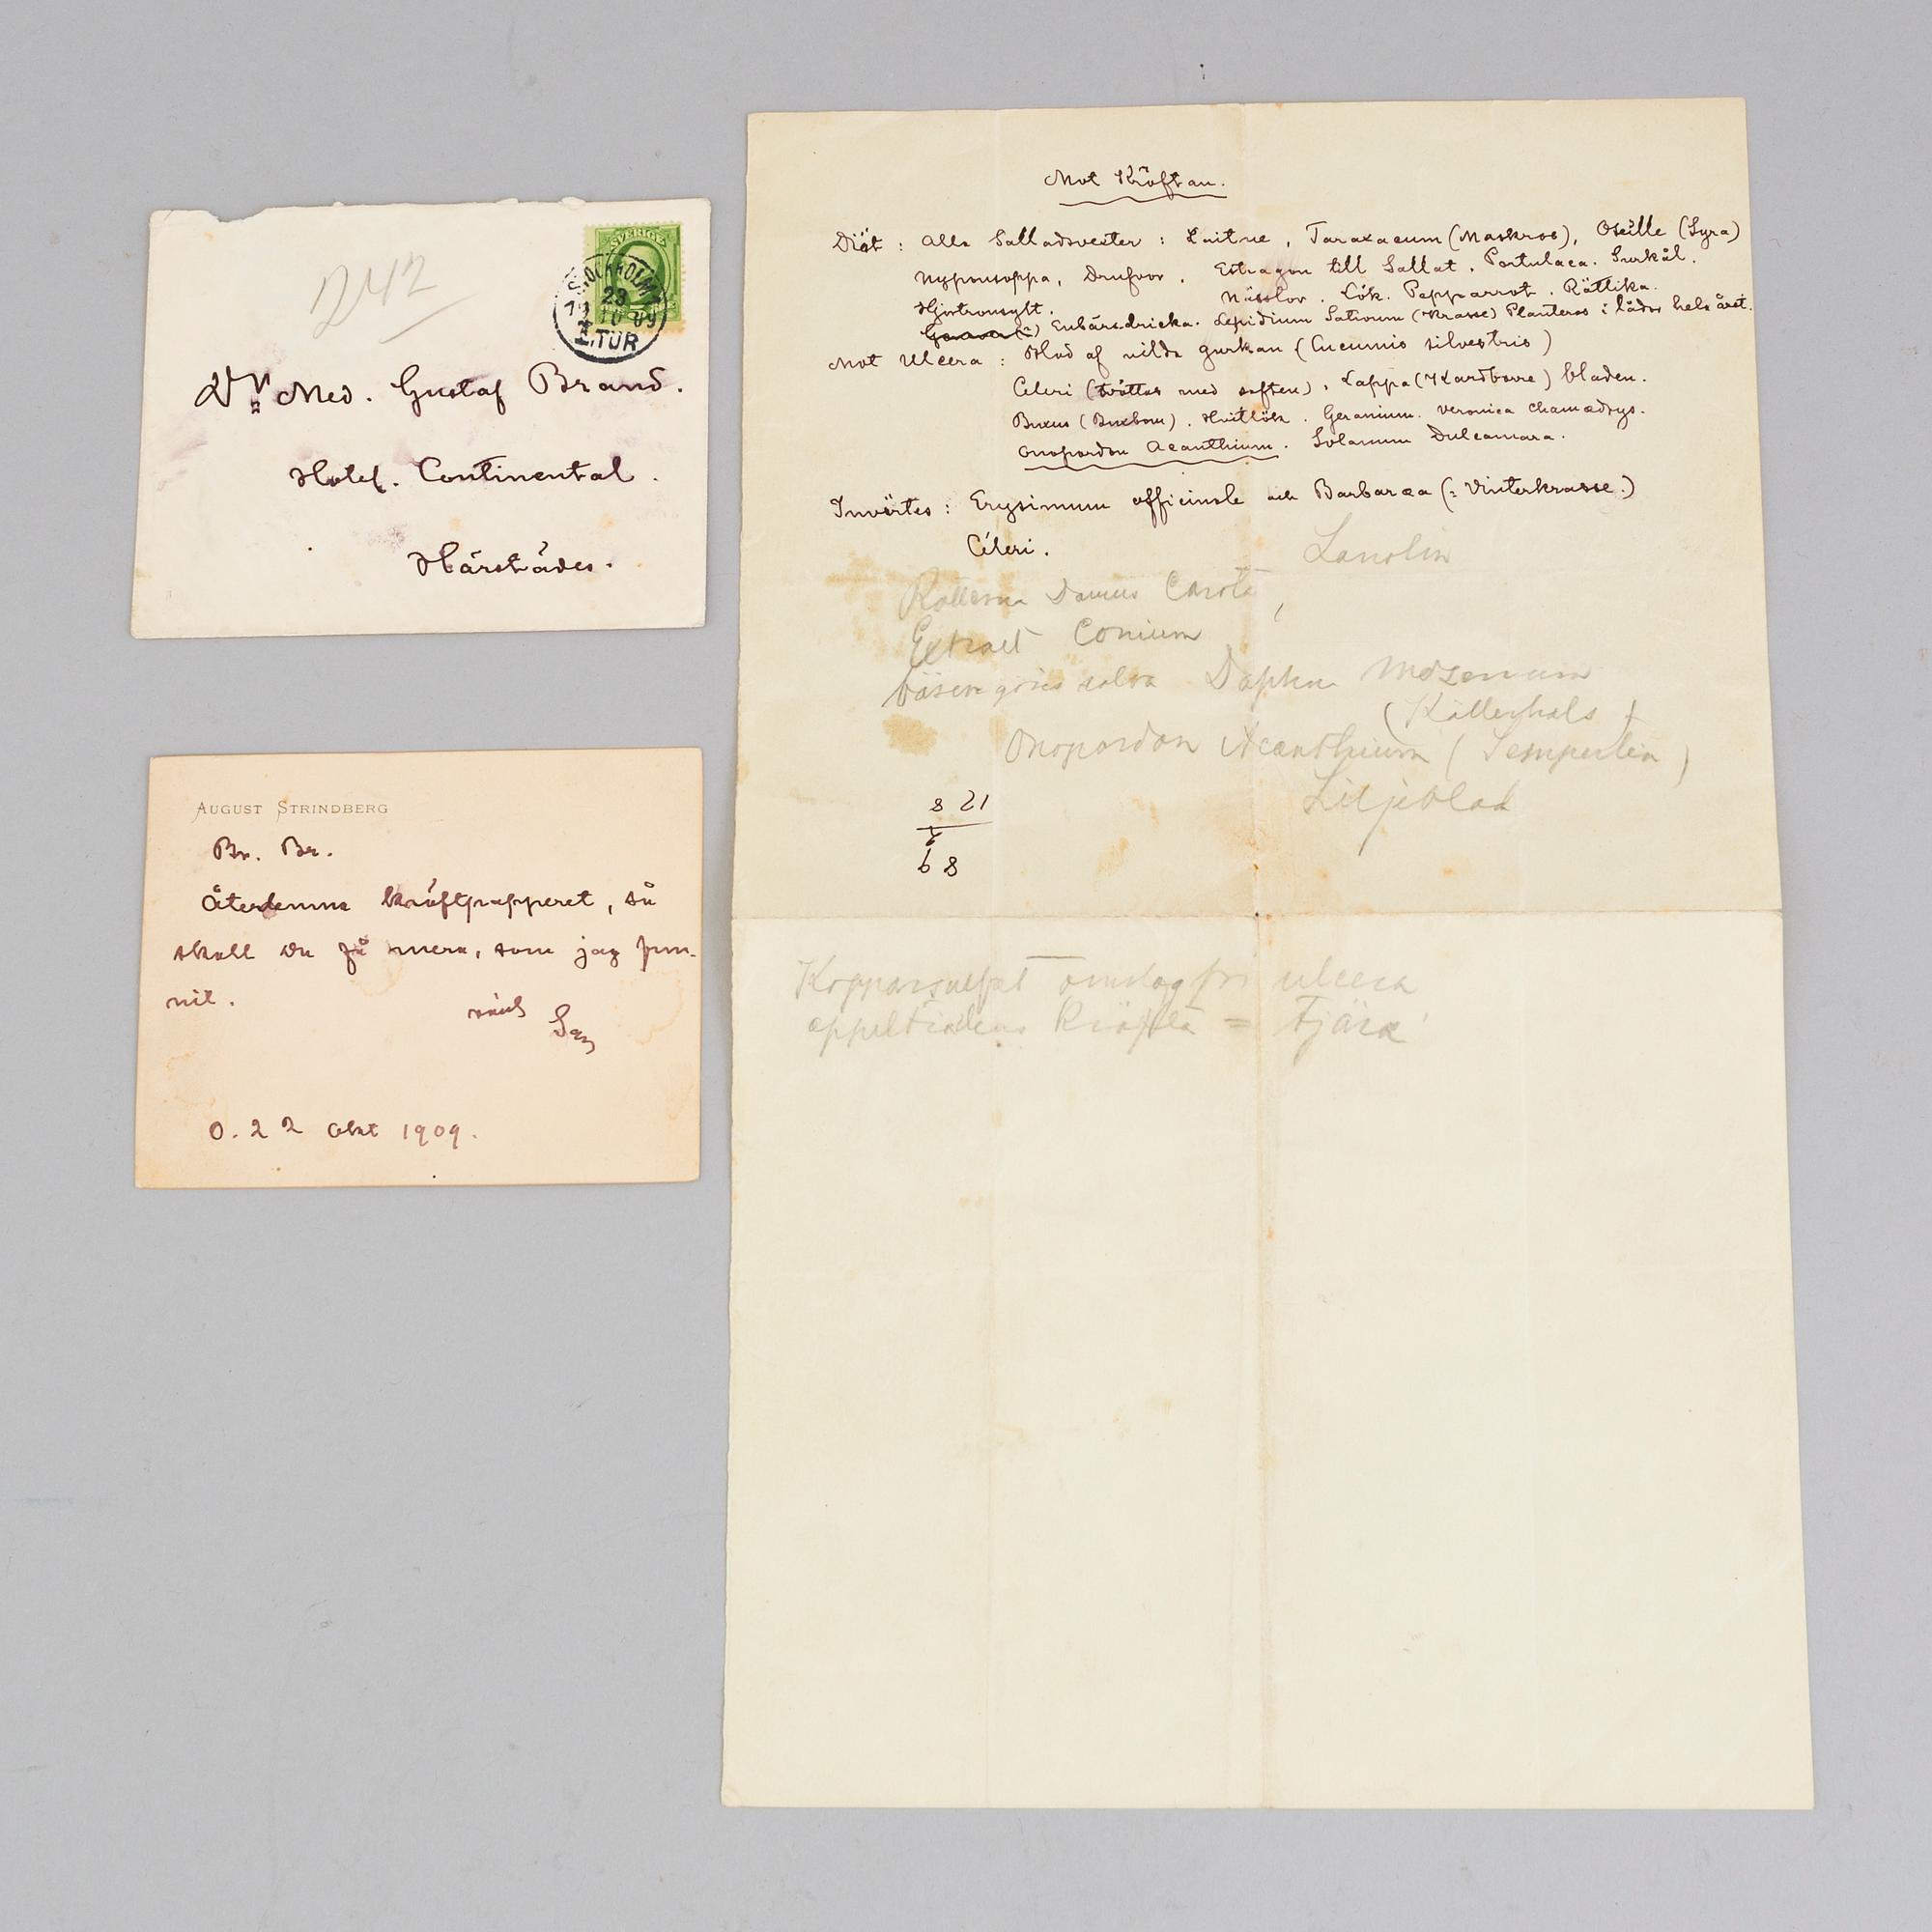 242
SVERIGE
STOCKHOLM 1
23
10 09
1.TUR
Dr Med. Gustaf Brand.
Hotel. Continental.
Härstädes.
AUGUST STRINDBERG
Br. Br.
Återlemna kräftpapperet, så
skall du få mera, som jag fun-
nit.
vänl
O. 22 Okt 1909.
Mot Kräftan.
Diät: Alla Salladsvexter: Laitue, Taraxacum (Maskros), Oseille (Syra)
Nyponsoppa, Drufvor. Estragon till Sallat. Portulaca. Surkål.
Hjortronsylt. Nässlor. Lök. Pepparrot. Rättika.
Enbärsdricka. Lepidium Sativum (Krasse) Planteras i lådor hela året.
Mot Ulcera: af vilda gurkan (Cucumis silvestris)
Celeri (tvättas med saften), Lappa (Kardborre) bladen.
Buxus (Buxbom). Hvitlök. Geranium. Veronica Chamædrys.
Onopordon Acanthium. Solanum Dulcamara.
Invärtes: Erysimum officinale och Barbaræa (: Vinterkrasse:)
Céleri.
Lanolin
Daucus Carota,
Extract Conium
salva Daphne Mezereum
(Källerhals)
Onopordon Acanthium ( )
Liljeblad
8 21
68
Kopparsulfat omslag för ulcera
appelträdens Kräfta = Tjära